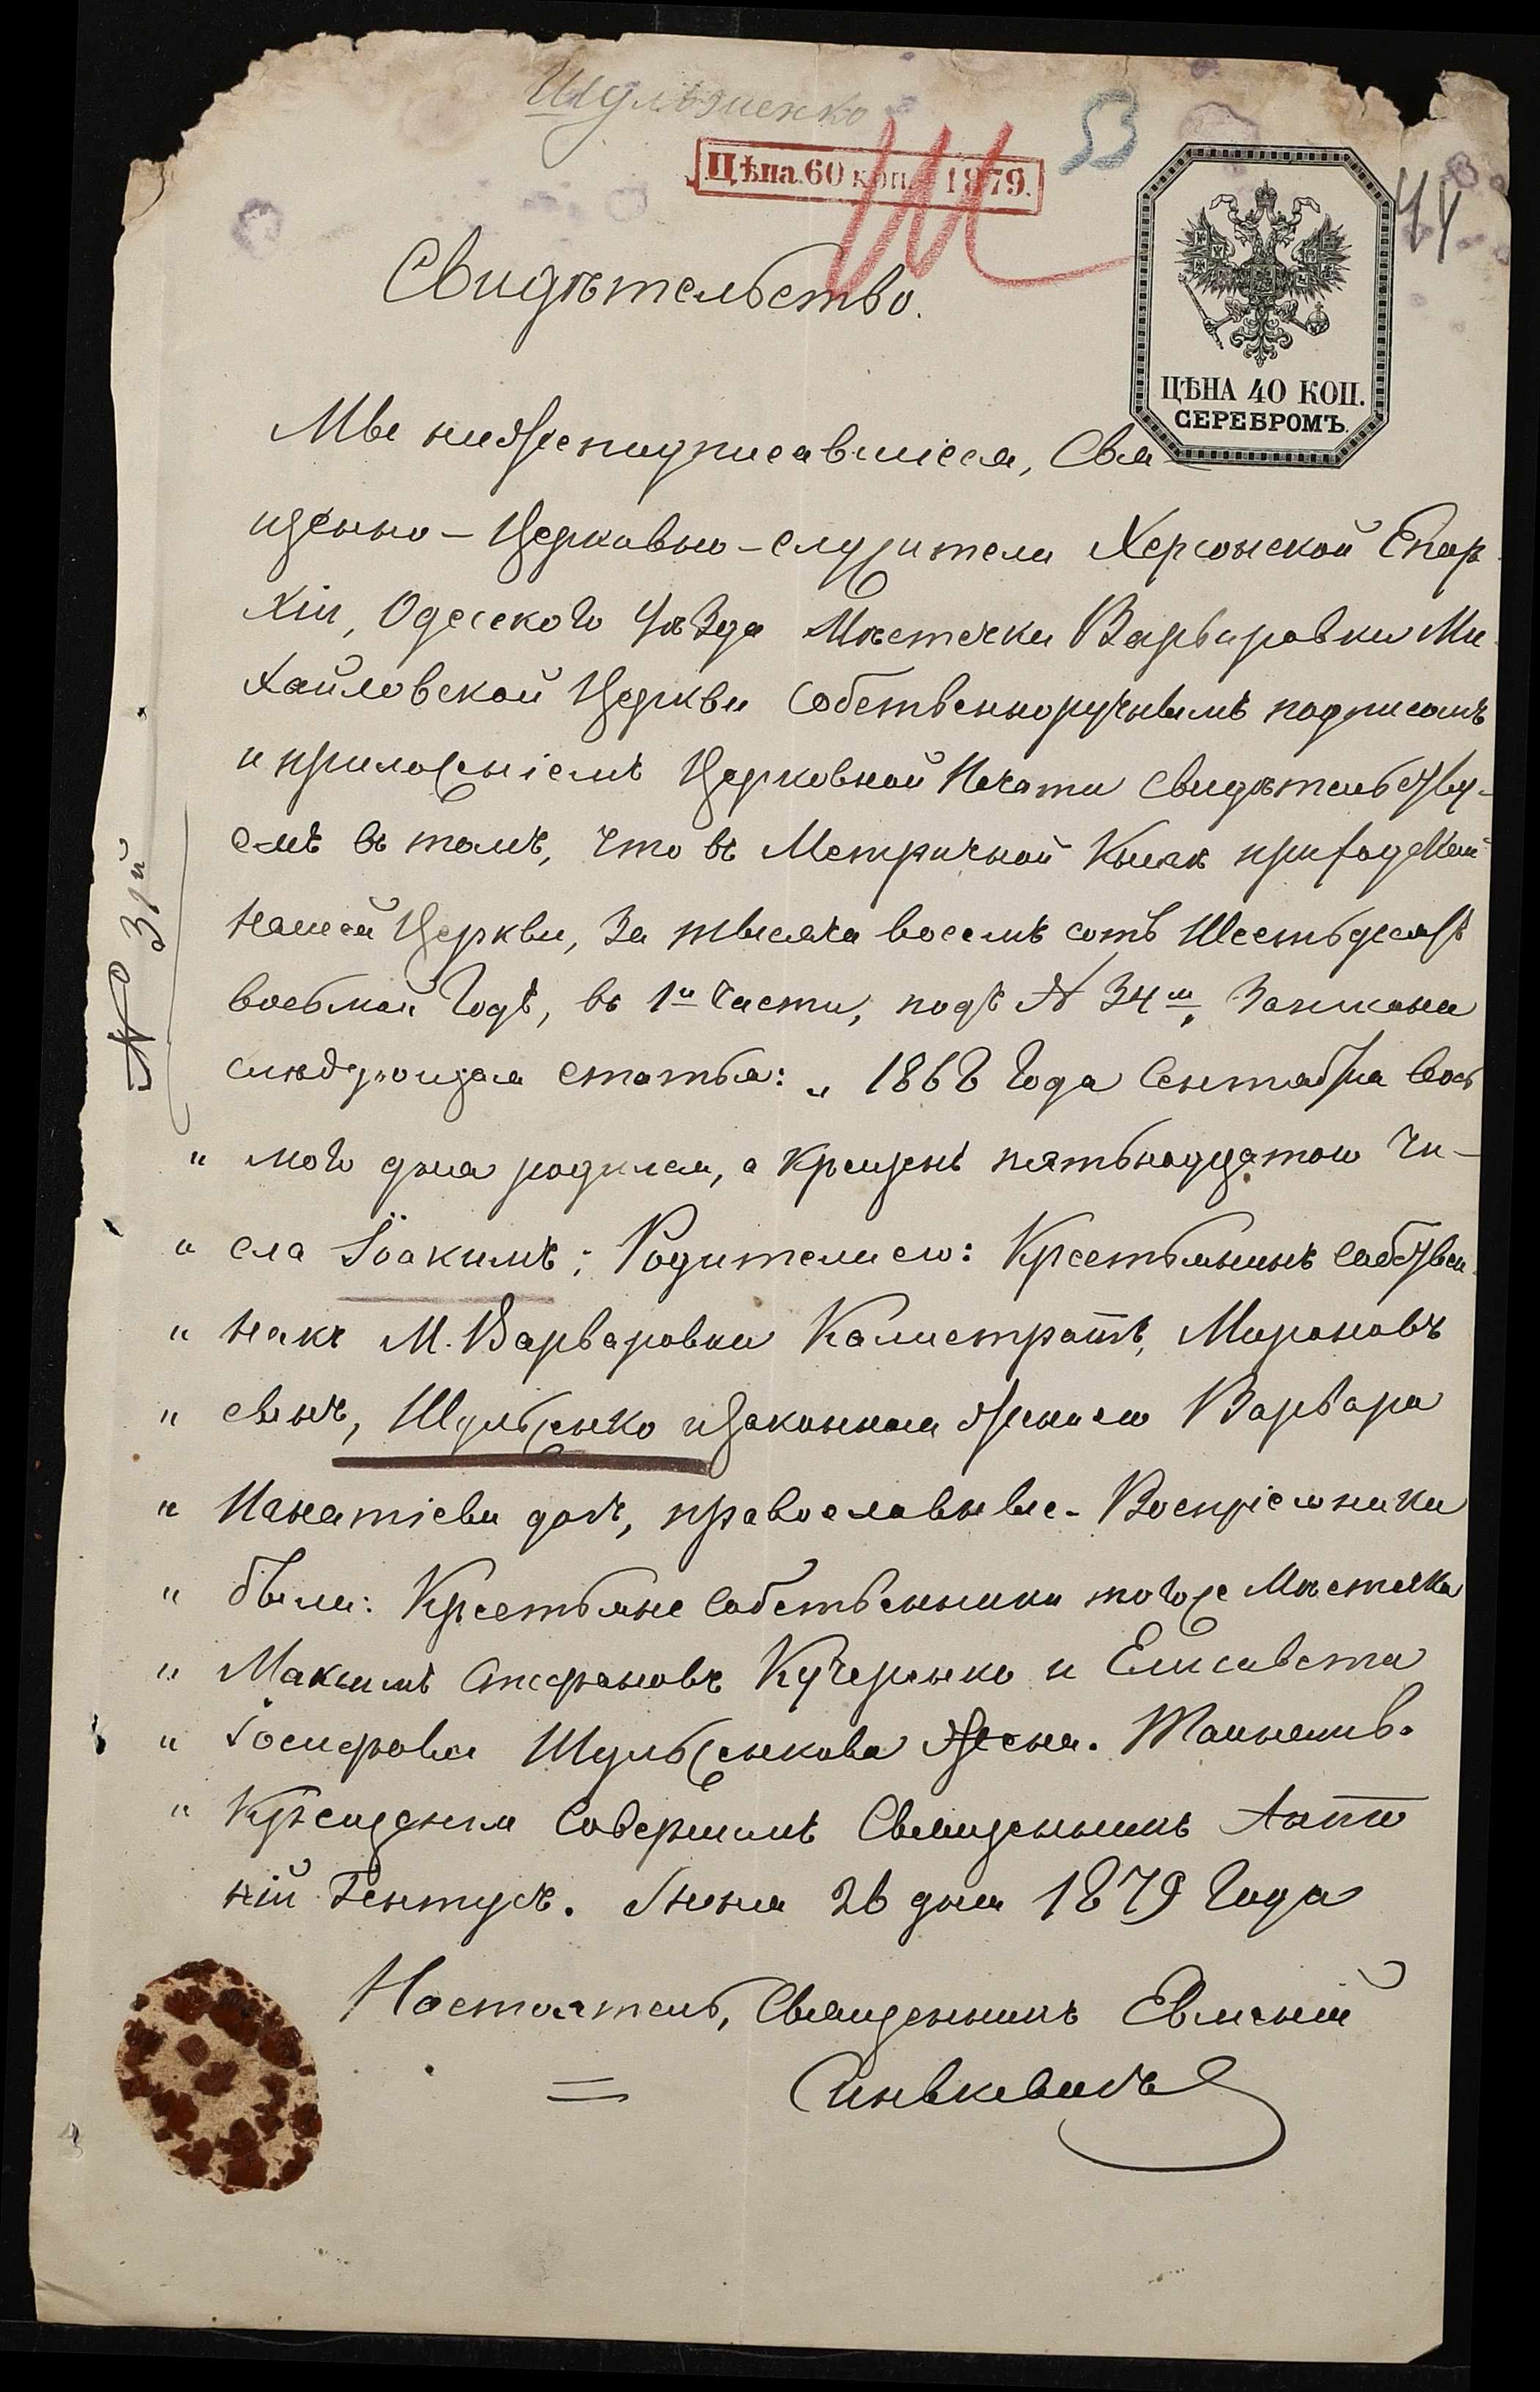 Шульженко
53
Цѣна 60 коп. 1879.
Ш
44
ЦѢНА 40 КОП.
СЕРЕБРОМЪ.
Свидѣтельство.
Мы нижеподписавшіеся, Свя-
щенно-Церковно-служители Херсонской Епар-
хіи, Одесского Уѣзда Мѣстечка Варваровки Ми-
хайловской Церкви собственноручнымъ подписомъ
и приложеніемъ Церковной Печати свидѣтельству-
емъ въ томъ, что въ Метричной Книгѣ приходской
нашей Церкви, за тысяча восемъ сотъ Шестьдесятъ
восьмой годъ, въ 1й части, подъ № 34м, записана
слѣдующая статья: „1868 года Сентября вось
„ мого дня родился, а крещенъ пятьнадцатого Чи-
„ сла Іоакимъ; Родители его: Крестьянинъ собствен-
„ никъ М. Варваровки Калистратъ, Мироновъ
„ сынъ, Шульженко и законная жена его Варвара
„ Игнатіева дочь, православные. Воспріемники
„ были: Крестьяне собственники того же Мѣстечка
„ Максимъ Стефановъ Кучеренко и Елисавета
„ Іосифова Шульженкова жена. Таинство
„ Крещенія совершилъ Священникъ Анто
ній Гентушъ. Іюня 26 дня 1879 года
Настоятель, Священникъ Евгеній
Синькевичъ
№ 31й